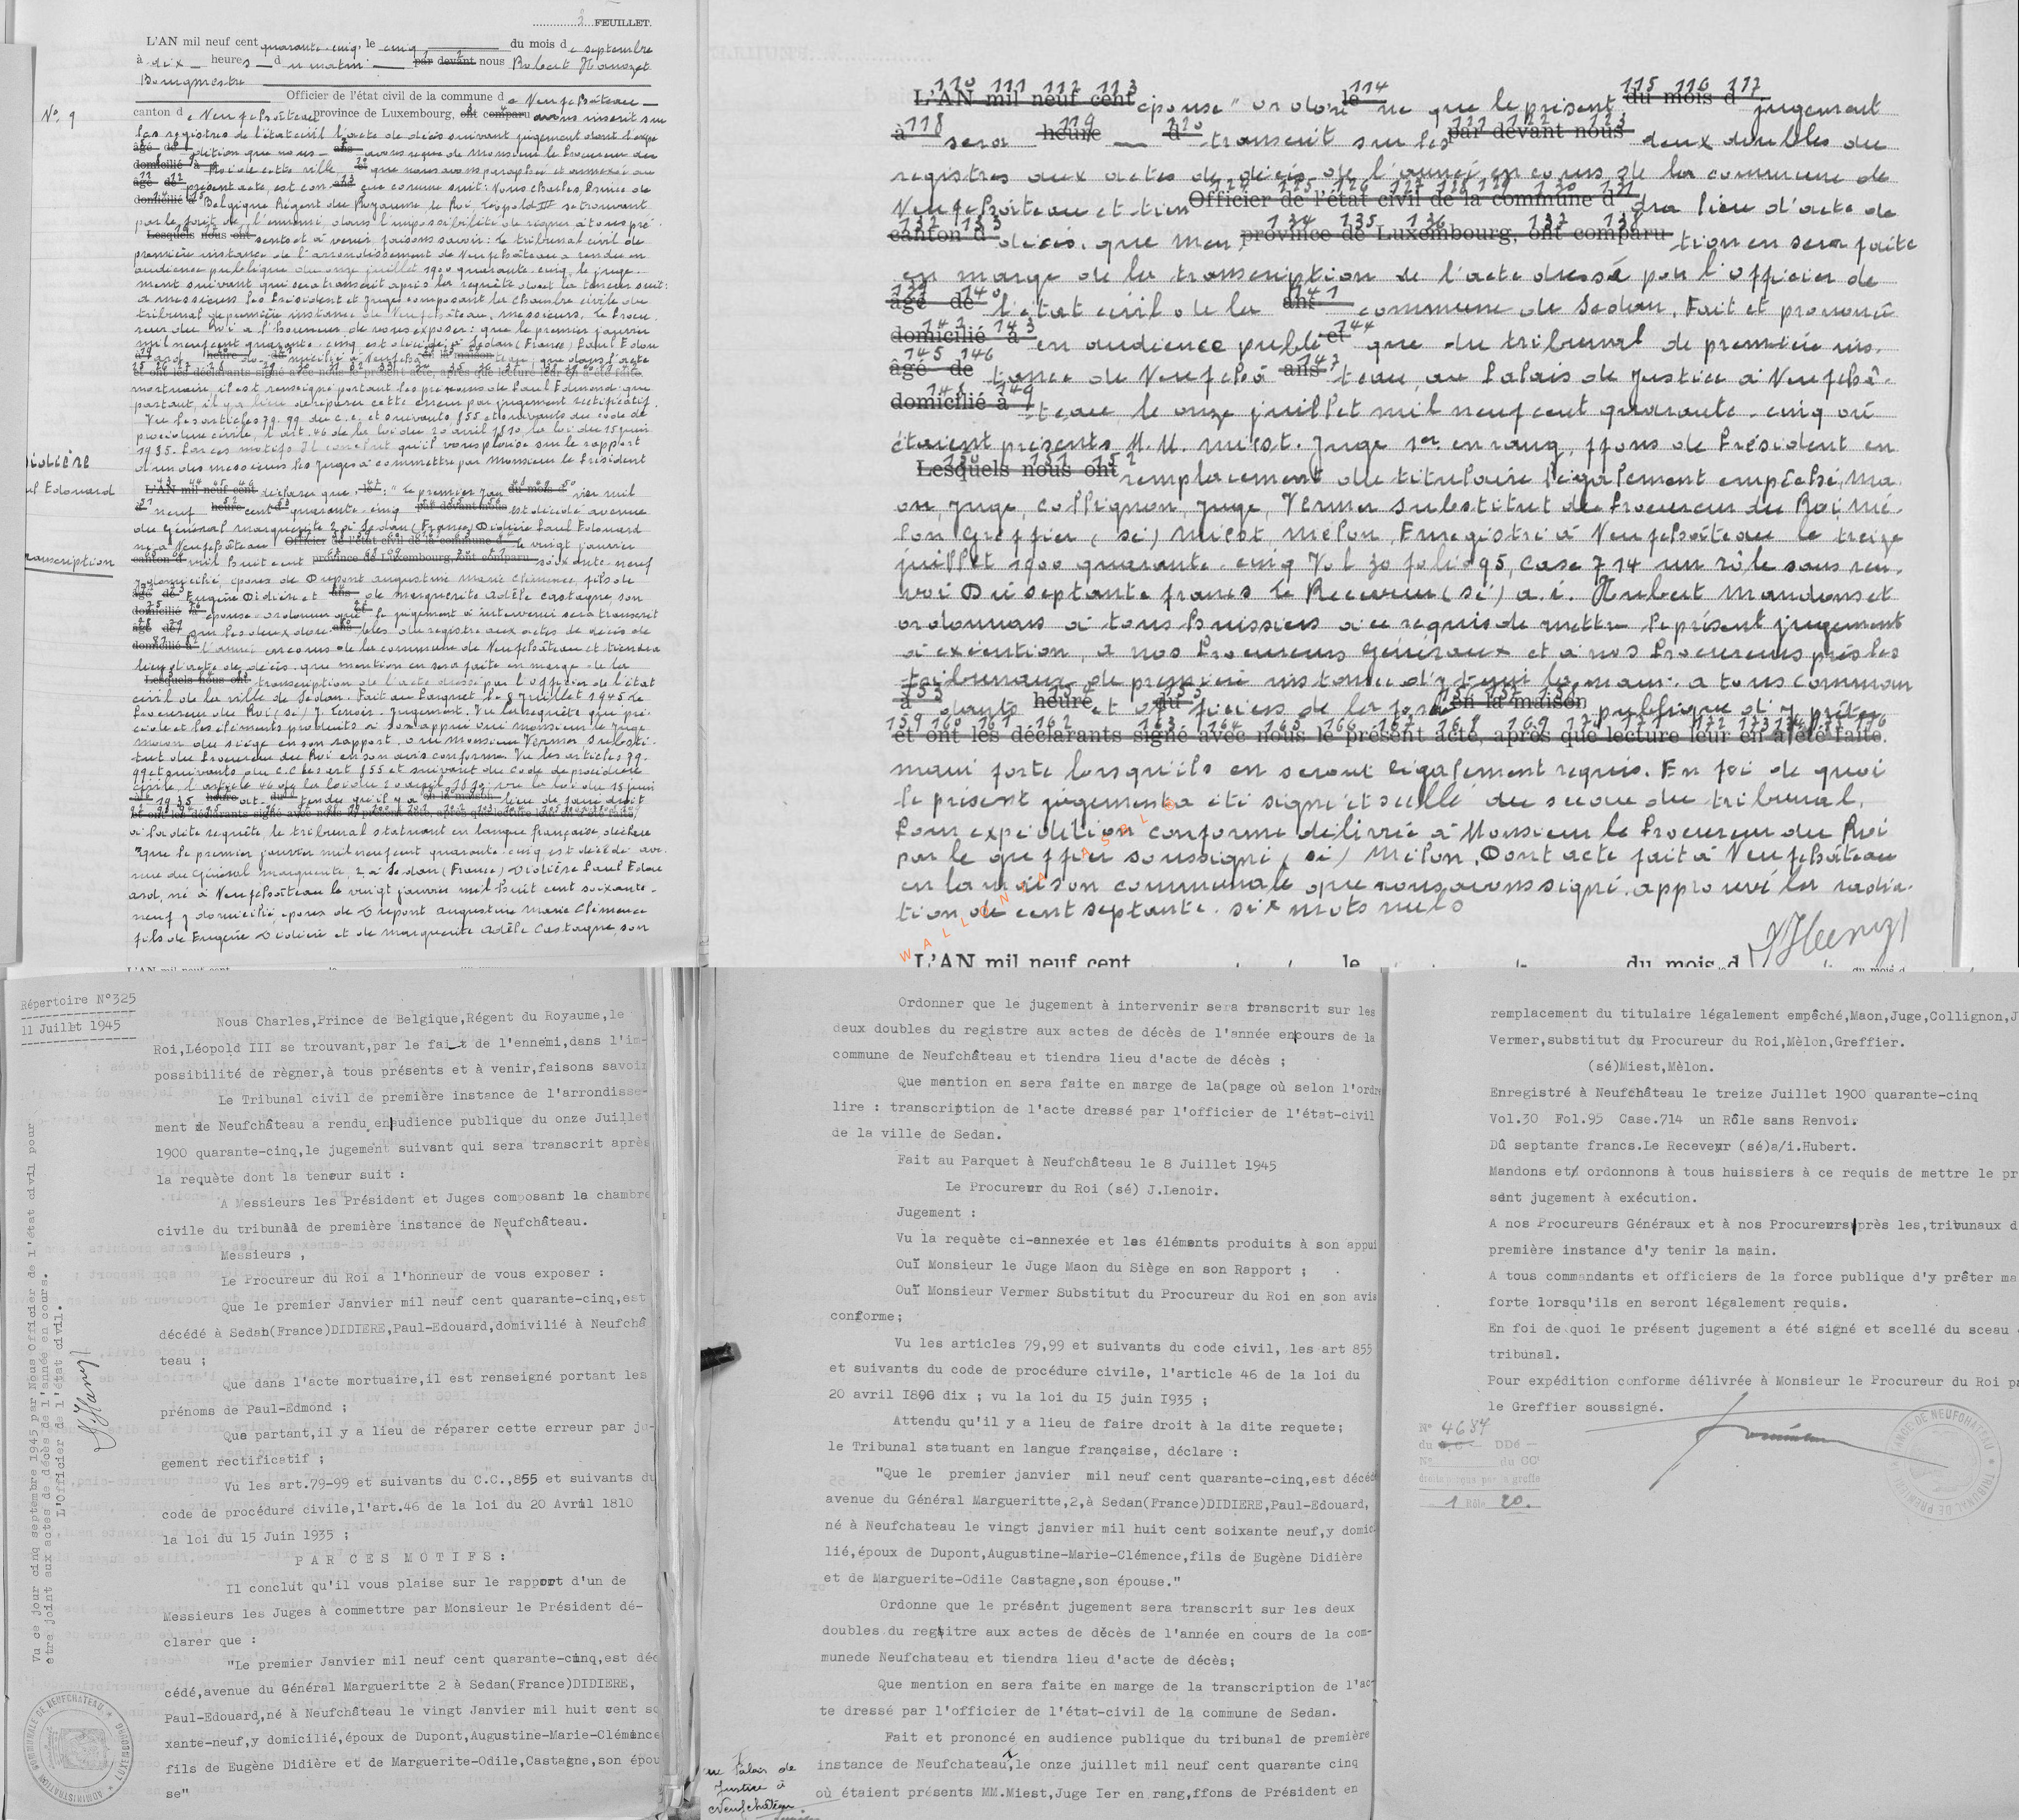 2 FEUILLET.
L'AN mil neuf cent quarante-cinq, le cinq du mois de septembre
à dix heures du matin par devant nous Robert Hanozet
Bourgmestre
Officier de l'état civil de la commune de Neufchâteau
N°. 9
canton de Neufchâteau province de Luxembourg, ont comparu avons inscrit sur
les registres de l'état civil l'acte de décès suivant jugement dont l'expé
âgé de dition que nous ans avons reçue de Monsieur le Procureur du
domicilié à Roi de cette ville, et que nous avons paraphée et annexée au
âgé de présent acte, est con ans çue comme suit: Nous Charles, Prince de
domicilié à Belgique Régent du Royaume le Roi Léopold III se trouvant
par le fait de l'ennemi, dans l'impossibilité de régner à tous pré
Lesquels nous ont sents et à venir faisons savoir: le tribunal civil de
première instance de l'arrondissement de Neufchâteau a rendu en
audience publique du onze juillet 1900 quarante-cinq, le juge-
ment suivant qui sera transcrit après la requête dont la teneur suit:
a messieurs les Président et Juges composant la chambre civile du
tribunal de première instance de Neufchâteau, messieurs, le Procu
reur du Roi a l'honneur de vous exposer: que le premier janvier
mil neuf cent quarante-cinq est décédé à Sedan (France) Paul Edou
à ard, heure do- du micilié à Neufchâ en la maison teau; que dans l'acte
et ont les déclarants signé avec nous le présent acte, après que lecture leur en a été faite.
mortuaire, il est renseigné portant les prénoms de Paul Edmond; que
partant, il y a lieu de réparer cette erreur par jugement rectificatif
Vu les articles 79.99 du c.c. et suivants 855 et suivants du code de
procédure civile, l'art. 46 de la loi du 20 avril 1810, la loi du 15 juin
1935. Par ces motifs Il conclut qu'il vous plaise sur le rapport
d'un des messieurs les Juges à commettre par Monsieur le Président
Didière
L'AN mil neuf cent déclarer que, le: "le premier jan du mois d vier mil
Edouard
à neuf heure cent d quarante-cinq par devant nous est décédé avenue
du Général Marguerite 2 à Sedan (France) Didière Paul Edouard
né à Neufchâteau Officier de l'état civil de la commune d le vingt janvier
Transcription
canton d mil huit cent province de Luxembourg, ont comparu soixante-neuf
y domicilié, époux de Dupont augustine marie Clémence, fils de
âgé de Eugène Didière et ans de marguerite Adèle Castagne, son
domicilié à épouse - ordonner que et le jugement à intervenir sera transcrit
âgé de sur les deux dou- ans bles du registre aux actes de décès de
domicilié à l'année en cours de la commune de Neufchâteau et tiendra
lieu d'acte de décès. que mention en sera faite en marge de la
Lesquels nous ont transcription de l'acte dressé par l'officier de l'état
civil de la ville de Sedan. Fait au Parquet le 8 Juillet 1945 Le
Procureur du Roi (sé) J. Lenoir. Jugement. Vu la requête qui pré-
cède et les éléments produits à son appui ouï monsieur le Juge
maon du siège en son rapport, ouï monsieur Vermer substi-
tut du Procureur du Roi en son avis conforme. Vu les articles 79.
99 et suivants du C.C. les art 855 et suivant du Code de procédure
civile, l'article 46 de la loi du 20 avril 1810, vu la loi du 15 juin
à 1935 heure at- du tendu qu'il y a en la maison lieu de faire droit
et ont les déclarants signé avec nous le présent acte, après que lecture leur en a été faite.
à la dite requête, le tribunal statuant en langue française, déclare
"que le premier janvier mil neuf cent quarante-cinq est décédé ave.
nue du Général Marguerite, 2 à Sedan (France) Didière Paul Edou
ard, né à Neufchâteau le vingt janvier mil huit cent soixante-
neuf y domicilié, époux de Dupont augustine marie Clémence
fils de Eugène Didière et de marguerite Adèle Castagne, son
L'AN mil neuf cent
110 111 112 113 114 115 116 117
L'AN mil neuf cent épouse" ordon le ne que le présent du mois d jugement
118 119 120 121 122 123
à sera heure d transcrit sur les par devant nous deux doubles du
registres aux actes de décès de l'année en cours de la commune de
124 125 126 127 128 129 130 131
Neufchâteau et tien Officier de l'état civil de la commune d dra lieu d'acte de
132 133 134 135 136 137 138
canton d décès. que men province de Luxembourg, ont comparu tion en sera faite
en marge de la transcription de l'acte dressé par l'officier de
139 140 141
âgé de l'état civil de la ans commune de Sedan. Fait et prononcé
142 143 144
domicilié à en audience publi et que du tribunal de première ins.
145 146 147
âgé de tance de Neufchâ ans teau, au Palais de Justice à Neufchâ-
148 149
domicilié à teau le onze juillet mil neuf cent quarante-cinq où
étaient présents M.M. Miest. Juge 1er en rang, ffons de Président en
150 151 152
Lesquels nous ont remplacement du titulaire légalement empêché, Ma-
on, Juge, Collignon, Juge, Vermer substitut du Procureur du Roi, Mé-
lon Greffier (sé) Miest, Mélon, Enregistré à Neufchâteau le treize
juillet 1900 quarante-cinq Vol 30 folio 95, Case 714 un rôle sans ren-
voi Dû septante francs Le Receveur (sé) a.i. Hubert Mandons et
ordonnons à tous huissiers à ce requis de mettre le présent jugement
à exécution, a nos Procureurs Généraux et à nos Procureurs près les
tribunaux de première instance d'y tenir la main. a tous comman
153 154 155 156 157 158
à dants heure et of du ficiers de la force en la maison publique d'y prêter
159 160 161 162 163 164 165 166 167 168 169 170 171 172 173 174 175 176
et ont les déclarants signé avec nous le présent acte, après que lecture leur en a été faite.
main forte lorsqu'ils en seront légalement requis. En foi de quoi
le présent jugement a été signé et scellé du sceau du tribunal.
Pour expédition conforme délivrée à Monsieur le Procureur du Roi
par le greffier soussigné, (sé) Mélon. Dont acte fait à Neufchâteau
en la maison communale que nous avons signé. approuvé la radia-
tion de cent septante-six mots nuls
WALLONIA ASBL ©
L'AN mil neuf cent le du mois d
Répertoire N°325
11 Juillet 1945
Nous Charles,Prince de Belgique,Régent du Royaume,le
Roi,Léopold III se trouvant,par le fait de l'ennemi,dans l'im-
possibilité de règner,à tous présents et à venir,faisons savoir
Le Tribunal civil de première instance de l'arrondisse-
ment de Neufchâteau a rendu en audience publique du onze Juillet
1900 quarante-cinq,le jugement suivant qui sera transcrit après
la requète dont la teneur suit :
A Messieurs les Président et Juges composant la chambre
civile du tribunal de première instance de Neufchâteau.
Messieurs ,
Le Procureur du Roi a l'honneur de vous exposer :
Que le premier Janvier mil neuf cent quarante-cinq,est
décédé à Sedan(France)DIDIERE,Paul-Edouard,domivilié à Neufchâ
teau ;
Que dans l'acte mortuaire,il est renseigné portant les
prénoms de Paul-Edmond ;
Que partant,il y a lieu de réparer cette erreur par ju-
gement rectificatif ;
Vu les art.79-99 et suivants du C.C.,855 et suivants du
code de procédure civile,l'art.46 de la loi du 20 Avril 1810
la loi du 15 Juin 1935 ;
PAR CES MOTIFS :
Il conclut qu'il vous plaise sur le rapport d'un de
Messieurs les Juges à commettre par Monsieur le Président dé-
clarer que :
"Le premier Janvier mil neuf cent quarante-cinq,est dé
cédé,avenue du Général Margueritte 2 à Sedan(France)DIDIERE,
Paul-Edouard,né à Neufchâteau le vingt Janvier mil huit cent so
xante-neuf,y domicilié,époux de Dupont,Augustine-Marie-Clémence
fils de Eugène Didière et de Marguerite-Odile,Castagne,son épou
se"
Vu ce jour cinq septembre 1945 par Nous Officier de l'état civil pour
etre joint aux actes de décès de l'année en cours.
L'Officier de l'état civil.
ADMINISTRATION COMMUNALE DE NEUFCHATEAU * LUXEMBOURG *
Ordonner que le jugement à intervenir sera transcrit sur les
deux doubles du registre aux actes de décès de l'année en cours de la
commune de Neufchâteau et tiendra lieu d'acte de décès ;
Que mention en sera faite en marge de la(page où selon l'ordre
lire : transcription de l'acte dressé par l'officier de l'état-civil
de la ville de Sedan.
Fait au Parquet à Neufchâteau le 8 Juillet 1945
Le Procureur du Roi (sé) J.Lenoir.
Jugement :
Vu la requète ci-annexée et les éléments produits à son appui
Ouï Monsieur le Juge Maon du Siège en son Rapport ;
Ouï Monsieur Vermer Substitut du Procureur du Roi en son avis
conforme;
Vu les articles 79,99 et suivants du code civil, les art 855
et suivants du code de procédure civile, l'article 46 de la loi du
20 avril dix ; vu la loi du I5 juin I935 ;
Attendu qu'il y a lieu de faire droit à la dite requete;
le Tribunal statuant en langue française, déclare :
"Que le premier janvier mil neuf cent quarante-cinq,est décéd
avenue du Général Margueritte,2,à Sedan(France)DIDIERE,Paul-Edouard,
né à Neufchateau le vingt janvier mil huit cent soixante neuf,y domic
lié,époux de Dupont,Augustine-Marie-Clémence,fils de Eugène Didière
et de Marguerite-Odile Castagne,son épouse."
Ordonne que le présent jugement sera transcrit sur les deux
doubles du regsitre aux actes de décès de l'année en cours de la com-
munede Neufchateau et tiendra lieu d'acte de décès;
Que mention en sera faite en marge de la transcription de l'ac-
te dressé par l'officier de l'état-civil de la commune de Sedan.
Fait et prononcé en audience publique du tribunal de première
instance de Neufchateau,le onze juillet mil neuf cent quarante cinq
où étaient présents MM.Miest,Juge Ier en rang,ffons de Président en
au Palais de
Justice à
Neufchâteau
remplacement du titulaire légalement empêché,Maon,Juge,Collignon,J
Vermer,substitut du Procureur du Roi,Mèlon,Greffier.
(sé)Miest,Mèlon.
Enregistré à Neufchâteau le treize Juillet 1900 quarante-cinq
Vol.30 Fol.95 Case.714 un Rôle sans Renvoi.
Dû septante francs.Le Receveur (sé)a/i.Hubert.
Mandons et ordonnons à tous huissiers à ce requis de mettre le pr
sent jugement à exécution.
A nos Procureurs Généraux et à nos Procureurs près les,tribunaux d
première instance d'y tenir la main.
A tous commandants et officiers de la force publique d'y prêter ma
forte lorsqu'ils en seront légalement requis.
En foi de quoi le présent jugement a été signé et scellé du sceau
tribunal.
Pour expédition conforme délivrée à Monsieur le Procureur du Roi pa
le Greffier soussigné.
N° 4687
du DDé
N° du CC
droits perçus par le greffe
1 Rôle 20.